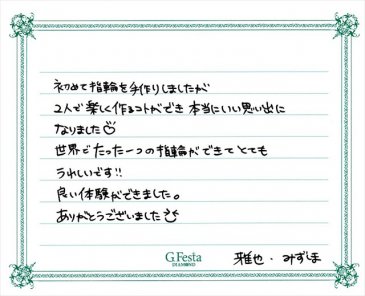 初めて指輪を手作りしましたが
2人で楽しく作るコトができ本当にいい思い出に
なりました♡
世界でたった一つの指輪ができてとても
うれしいです!!
良い体験ができました。
ありがとうございました
G.Festa
DIAMOND
雅也・みずほ